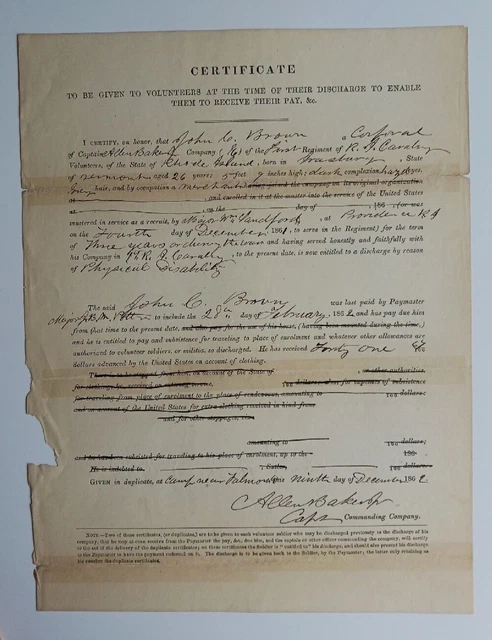 CERTIFICATE
TO BE GIVEN TO VOLUNTEERS AT THE TIME OF THEIR DISCHARGE TO ENABLE
THEM TO RECEIVE THEIR PAY, &c.
I CERTIFY, on honor, that John C. Brown a Corporal
of Captain Allen Baker Jr Company ( ) of the First Regiment of R. I. Cavalry
Volunteers, of the State of Rhode Island, born in Irasburg, State
of Vermont aged 26 years; 5 feet 9 inches high; dark complexion, hazel eyes,
hair, and by occupation a Merchant having joined the company on its original organization
at and enrolled in it at the muster into the service of the United States
at on the day of 186 , for
mustered in service as a recruit, by Major Wm Sandford, at Providence R I
on the Fourth day of December, 1861, to serve in the Regiment for the term
of Three years or during the war and having served honestly and faithfully with
his Company in R. I. Cavalry, to the present date, is now entitled to a discharge by reason
of Physical Disability
The said John C. Brown was last paid by Paymaster
Major to include the 28th day of February, 1862, and has pay due him
from that time to the present date, and also pay for the use of his horse, (having been mounted during the time,)
and he is entitled to pay and subsistence for traveling to place of enrolment and whatever other allowances are
authorized to volunteer soldiers, or militia, so discharged. He has received Forty one 100
dollars advanced by the United States on account of clothing.
There is to be stopped from him, on account of the State of , or other authorities,
for clothing, &c. received on , 100 dollars; also for expenses of subsistence
for traveling from place of enrolment to the place of rendezvous, amounting to 100 dollars;
and on account of the United States for extra clothing received in kind from
and for other stoppages, viz:
amounting to 100 dollars;
and he has been subsisted for traveling to his place of enrolment, up to the 186
He is indebted to , Sutler, 100 dollars.
GIVEN in duplicate, at Camp near Falmouth this Ninth day of December 1862
Allen Baker Jr
Capt Commanding Company.
NOTE.—Two of these certificates, (or duplicates,) are to be given to each volunteer soldier who may be discharged previously to the discharge of his
company, that he may at once receive from the Paymaster the pay, &c. due him, and the captain or other officer commanding the company, will certify
to the act of the delivery of the duplicate certificates; on these certificates the Soldier is "entitled to" his discharge, and should also present his discharge
to the Paymaster to have the payment endorsed on it. The discharge is to be given back to the Soldier, by the Paymaster; the latter only retaining as
his voucher the duplicate certificates.